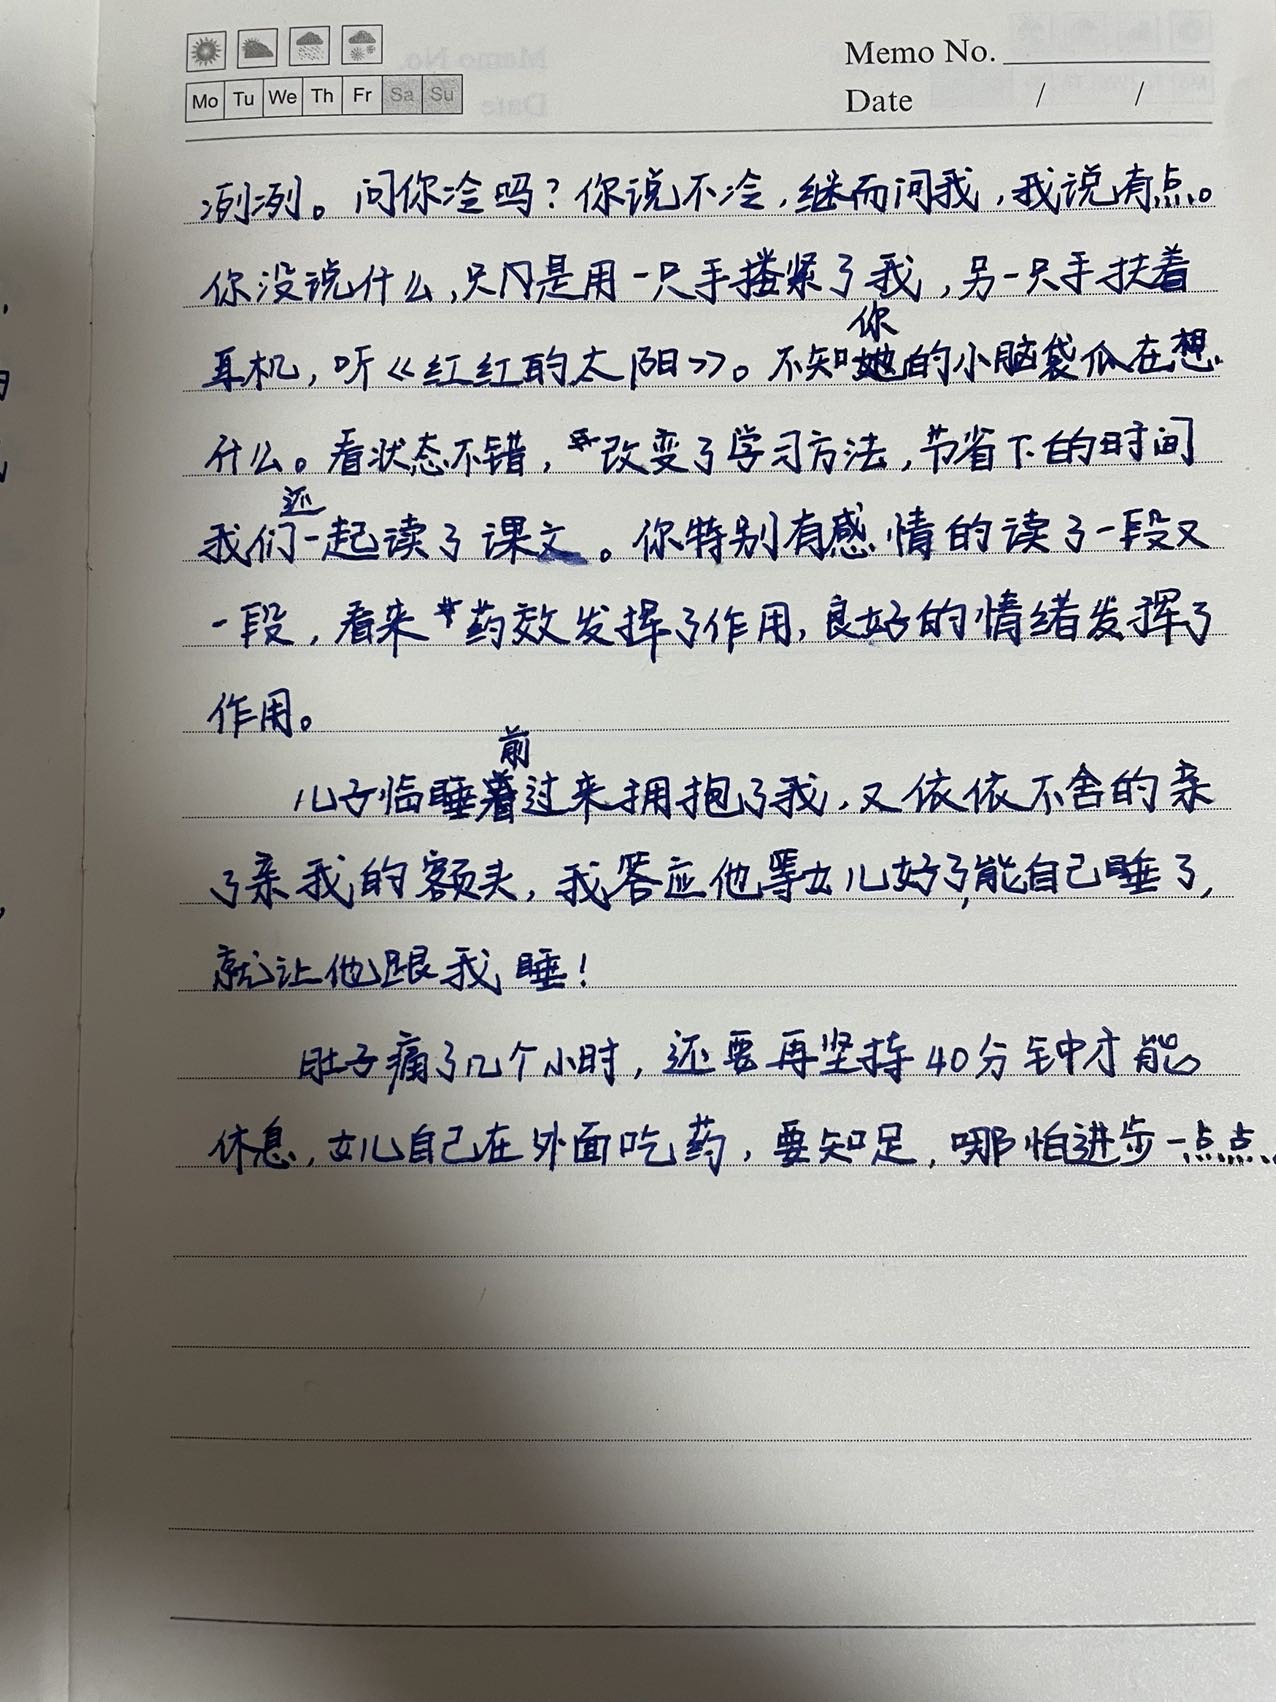 Mo Tu We Th Fr Sa Su
Memo No.
Date / /
冽冽。问你冷吗？你说不冷，继而问我，我说有点。
你没说什么，只是用一只手搂紧了我，另一只手扶着
耳机，听《红红的太阳》。不知你的小脑袋瓜在想
什么。看状态不错，改变了学习方法，节省下的时间
我们还一起读了课文。你特别有感情的读了一段又
一段，看来药效发挥了作用，良好的情绪发挥了
作用。
儿子临睡前过来拥抱了我，又依依不舍的亲
了亲我的额头，我答应他等女儿好了，能自己睡了，
就让他跟我睡！
肚子痛了几个小时，还要再坚持40分钟才能
休息，女儿自己在外面吃药，要知足，哪怕进步一点点、